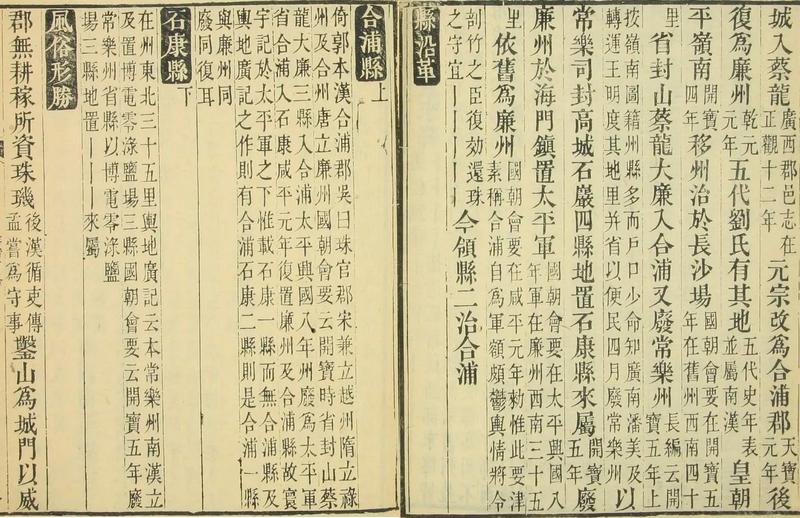 城入蔡龍廣西郡邑志在正觀十二年元宗改為合浦郡天寶元年後
復為廉州乾元元年五代劉氏有其地五代史年表並屬南漢皇朝
平嶺南開寶四年移州治於長沙場國朝會要在開寶五年在舊州西南四十
里省封山蔡龍大廉入合浦又廢常樂州長編云開寶五年上
按嶺南圖籍州縣多而戶口少命知廣南潘美及轉運王明度其地里并省以便民四月廢常樂州以
常樂司封高城石巖四縣地置石康縣來屬開寶五年廢
廉州於海門鎮置太平軍國朝會要在太平興國八年軍在廉州西南三十五
里依舊為廉州國朝會要在咸平元年勑惟此要津素稱合浦自為軍額頗鬱輿情將令
剖竹之臣復効還珠之守宜————今領縣二治合浦
縣沿革
合浦縣上
倚郭本漢合浦郡吳曰珠官郡宋兼立越州隋立祿
州及合州唐立廉州國朝會要云開寶時省封山蔡
龍大廉三縣入合浦太平興國八年州廢為太平軍
省合浦入石康咸平元年復置廉州及合浦縣故寰
宇記於太平軍之下惟載石康一縣而無合浦縣及
輿地廣記之作則有合浦石康二縣則是合浦一縣
與廉州同
廢同復耳
石康縣下
在州東北三十五里輿地廣記云本常樂州南漢立
及置博電零淥鹽場三縣國朝會要云開寶五年廢
常樂州省縣以博電零淥鹽
場三縣地置————來屬
風俗形勝
郡無耕稼所資珠璣後漢循吏傳孟嘗為守事鑿山為城門以威